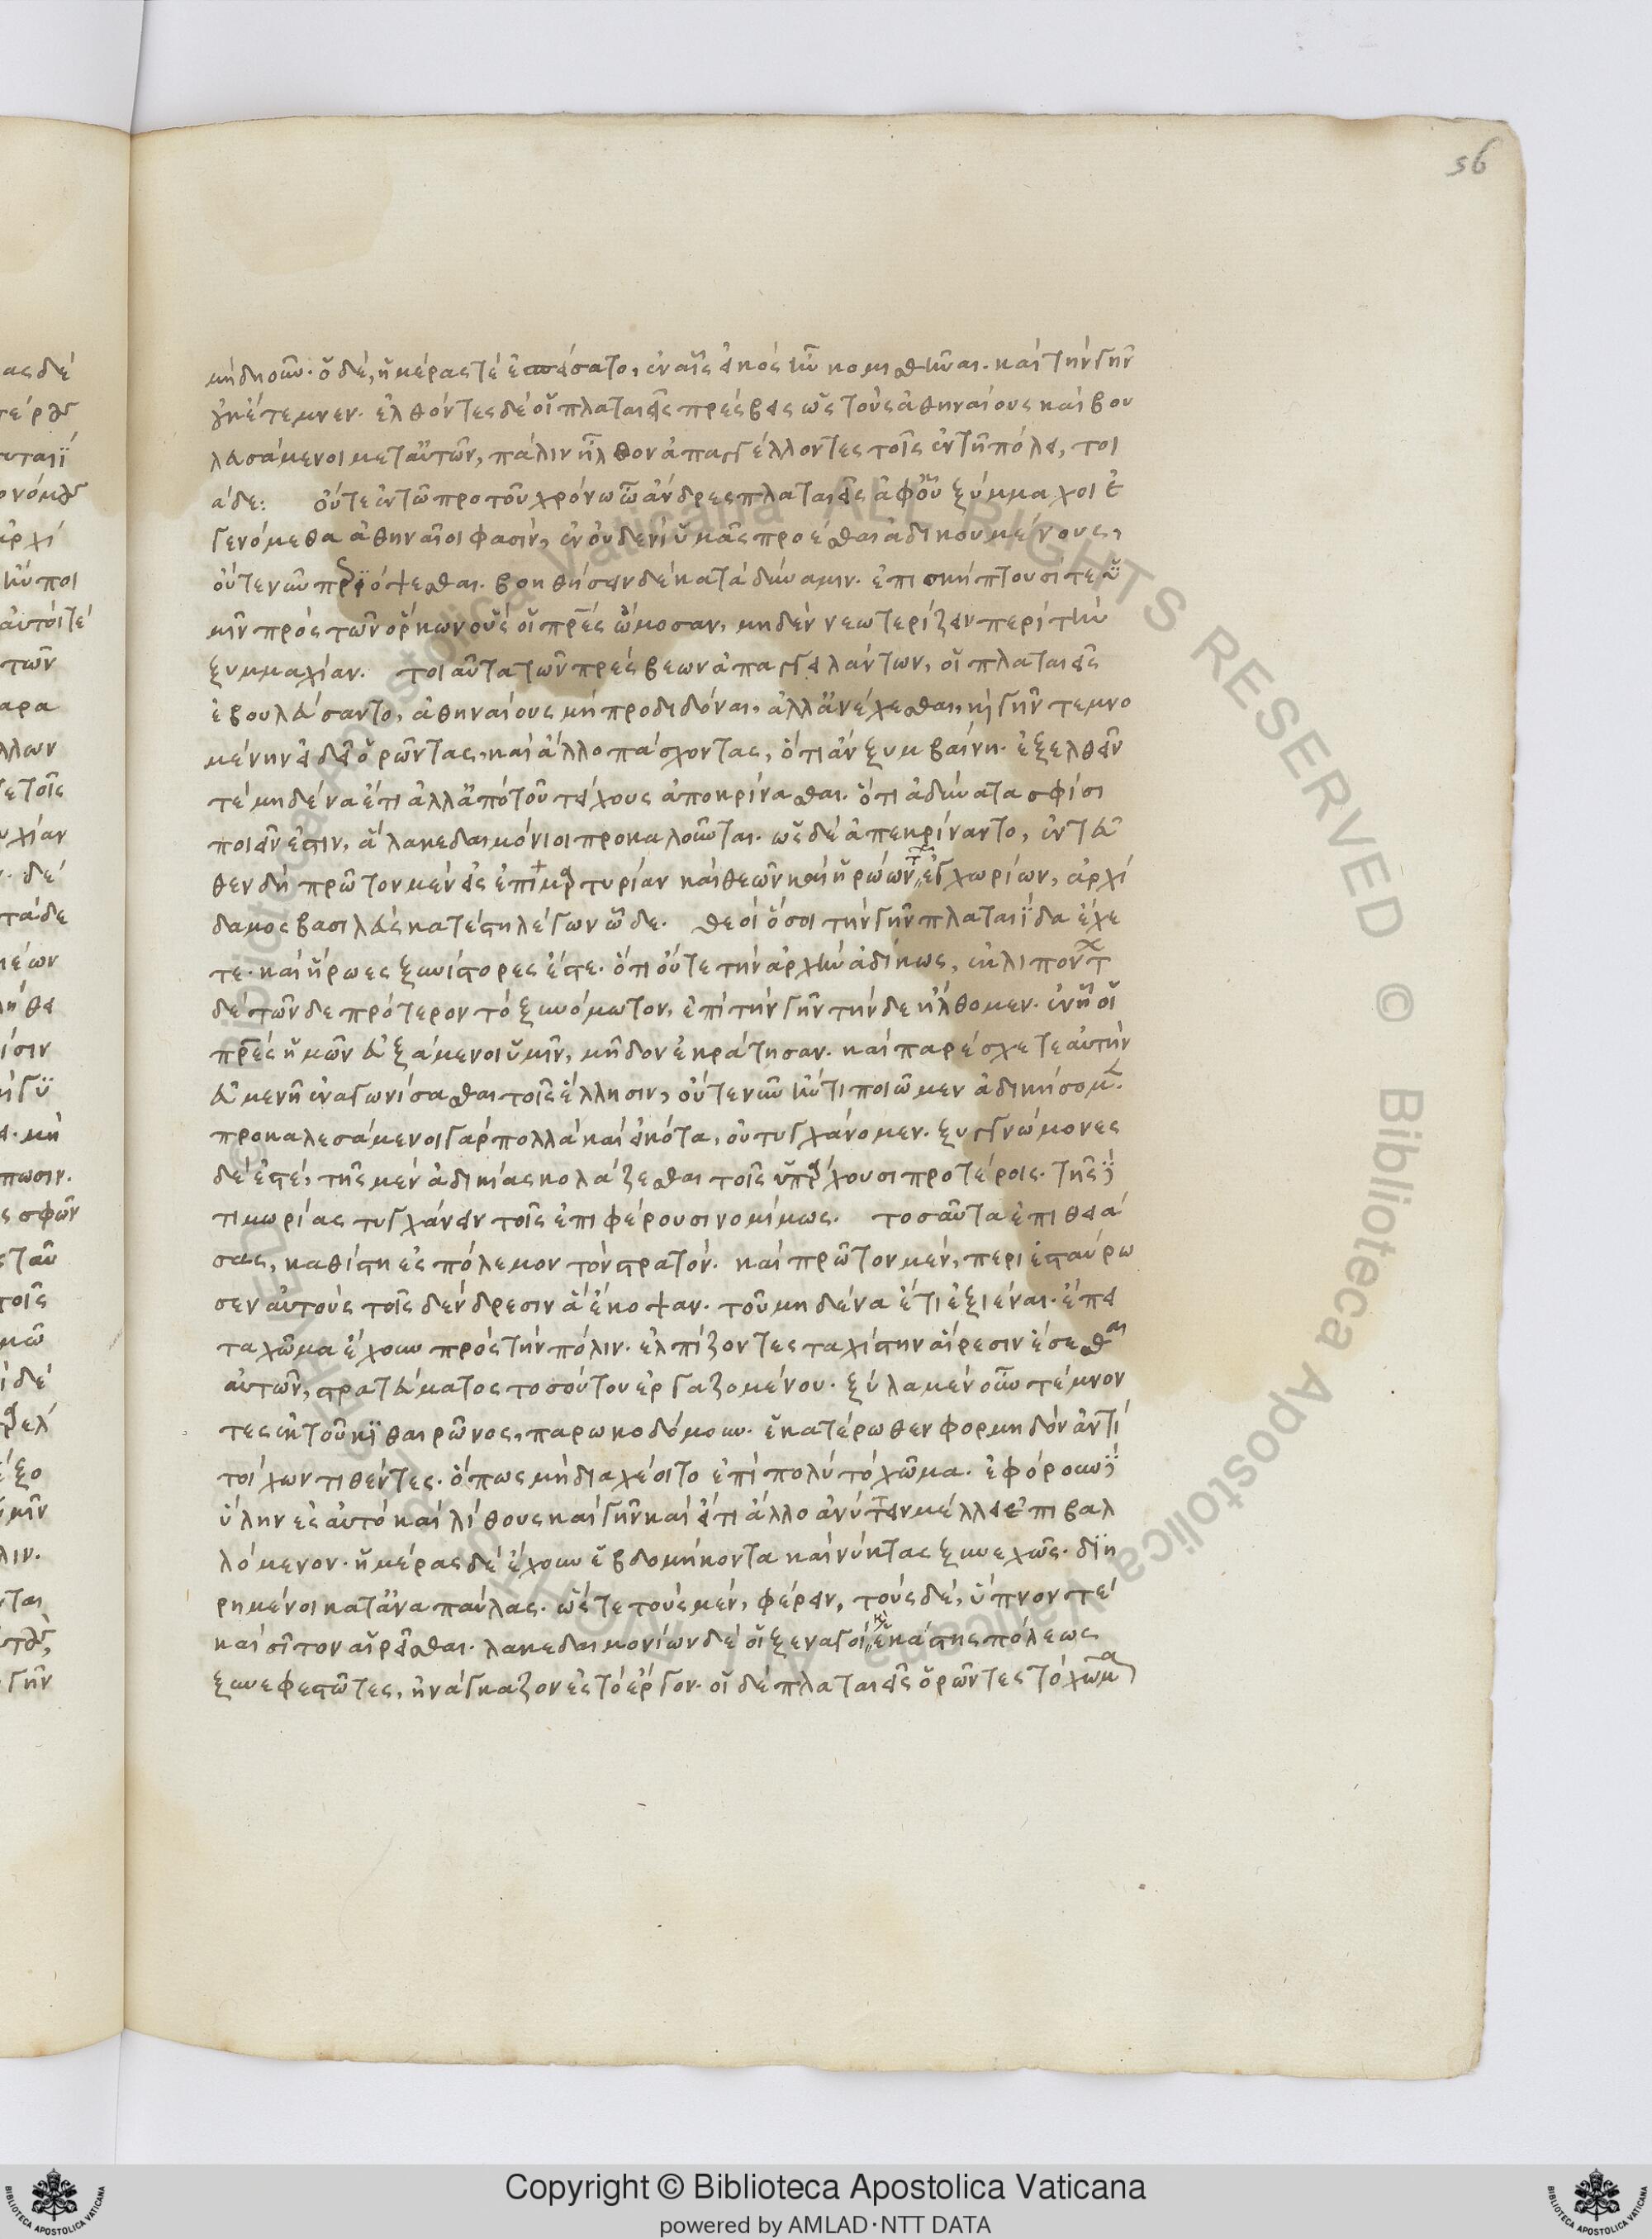 56
μὴ δῃοῦν. ὁ δὲ, ἡμέρας τὲ ἐσπείσατο, ἐν αἷς εἰκὸς ἦν κομισθῆναι. καὶ τὴν γῆν
οὐκ ἔτεμνεν. ἐλθόντες δὲ οἱ πλαταιεῖς πρέσβεις ὡς τοὺς ἀθηναίους καὶ βου
λευσάμενοι μετ αὐτῶν, πάλιν ἦλθον ἀπαγγέλλοντες τοῖς ἐν τῇ πόλει, τοι
άδε: οὔτε ἐν τῷ προτοῦ χρόνω ὦ ἄνδρες πλαταιεῖς ἀφ' οὗ ξύμμαχοι ἐ
γενόμεθα ἀθηναῖοι φασὶν, ἐν οὐδενὶ ὑμᾶς προέσθαι ἀδικουμένους,
οὔτε νῦν περιόψεσθαι. βοηθήσειν δὲ κατὰ δύναμιν. ἐπισκήπτουσί τε ὑ
μῖν πρὸς τῶν ὅρκων οὓς οἱ πρες ὤμοσαν, μηδὲν νεωτερίζειν περὶ τὴν
ξυμμαχίαν. τοιαῦτα τῶν πρέσβεων ἀπαγγειλάντων, οἱ πλαταιεῖς
ἐβουλεύσαντο, ἀθηναίους μὴ προδιδόναι, ἀλλ' ἀνέχεσθαι, κ(αὶ) γῆν τεμνο
μένην εἰ δεῖ ὁρῶντας, καὶ ἄλλο πάσχοντας, ὅτι ἂν ξυμβαίνῃ. ἐξελθεῖν
τὲ μηδένα ἔτι ἀλλ' ἀπὸ τοῦ τείχους ἀποκρίνασθαι. ὅτι ἀδύνατα σφίσι
ποιεῖν ἐστιν, ἃ λακεδαιμόνιοι προκαλοῦνται. ὡς δὲ ἀπεκρίναντο, ἐντεῦ
θεν δὴ πρῶτον μὲν εἰς ἐπιμαρτυρίαν καὶ θεῶν καὶ ἡρώων τῶν ἐγχωρίων, ἀρχί
δαμος βασιλεὺς κατέστη λέγων ὧδε. θεοὶ ὅσοι τὴν γῆν πλαταιΐδα ἔχε
τε. καὶ ἥρωες ξυνίστορες ἔστε. ὅτι οὔτε τὴν ἀρχὴν ἀδίκως, ἐκλιπόντων
δὲ τῶνδε πρότερον τὸ ξυνόμωτον, ἐπὶ τὴν γῆν τήνδε ἤλθομεν. ἐν ᾗ οἱ
πρες ἡμῶν εὐξάμενοι ὑμῖν, μήδων ἐκράτησαν. καὶ παρέσχετε αὐτὴν
εὐμενῆ ἐναγωνίσασθαι τοῖς ἕλλησιν, οὔτε νῦν ἤν τι ποιῶμεν ἀδικήσομ(εν).
προκαλεσάμενοι γὰρ πολλὰ καὶ εἰκότα, οὐ τυγχάνομεν. ξυγγνώμονες
δὲ ἐστὲ, τῆς μὲν ἀδικίας κολάζεσθαι τοῖς ὑπάρχουσι προτέροις. τῆς δὲ
τιμωρίας τυγχάνειν τοῖς ἐπιφέρουσι νομίμως. τοσαῦτα ἐπιθειά
σας, καθίστη ἐς πόλεμον τὸν στρατόν. καὶ πρῶτον μὲν, περιεσταύρω
σεν αὐτοὺς τοῖς δένδρεσιν ἃ ἔκοψαν. τοῦ μηδένα ἔτι ἐξιέναι. ἔπει
τα χῶμα ἔχουν πρὸς τὴν πόλιν. ἐλπίζοντες ταχίστην αἵρεσιν ἔσεσθαι
αὐτῶν, στρατεύματος τοσούτου ἐργαζομένου. ξύλα μὲν οὖν τέμνον
τες ἐκ τοῦ κιθαιρῶνος, παρωκοδόμουν. ἑκατέρωθεν φορμηδὸν ἀντὶ
τοίχων τιθέντες. ὅπως μὴ διαχέοιτο ἐπὶ πολὺ τὸ χῶμα. ἐφόρουν δὲ
ὕλην ἐς αὐτὸ καὶ λίθους καὶ γῆν καὶ εἴ τι ἄλλο ἀνύτειν μέλλει ἐπιβαλ
λόμενον. ἡμέρας δὲ ἔχουν ἑβδομήκοντα καὶ νύκτας ξυνεχῶς. διῃ
ρημένοι κατ' ἀναπαύλας. ὥστε τοὺς μὲν, φέρειν, τοὺς δὲ, ὕπνον τὲ
καὶ σῖτον αἱρεῖσθαι. λακεδαιμονίων δὲ οἱ ξεναγοὶ κ(αὶ) ἑκάστης πόλεως
ξυνεφεστῶτες, ἠνάγκαζον ἐς τὸ ἔργον. οἱ δὲ πλαταιεῖς ὁρῶντες τὸ χῶμα
Copyright © Biblioteca Apostolica Vaticana
powered by AMLAD·NTT DATA